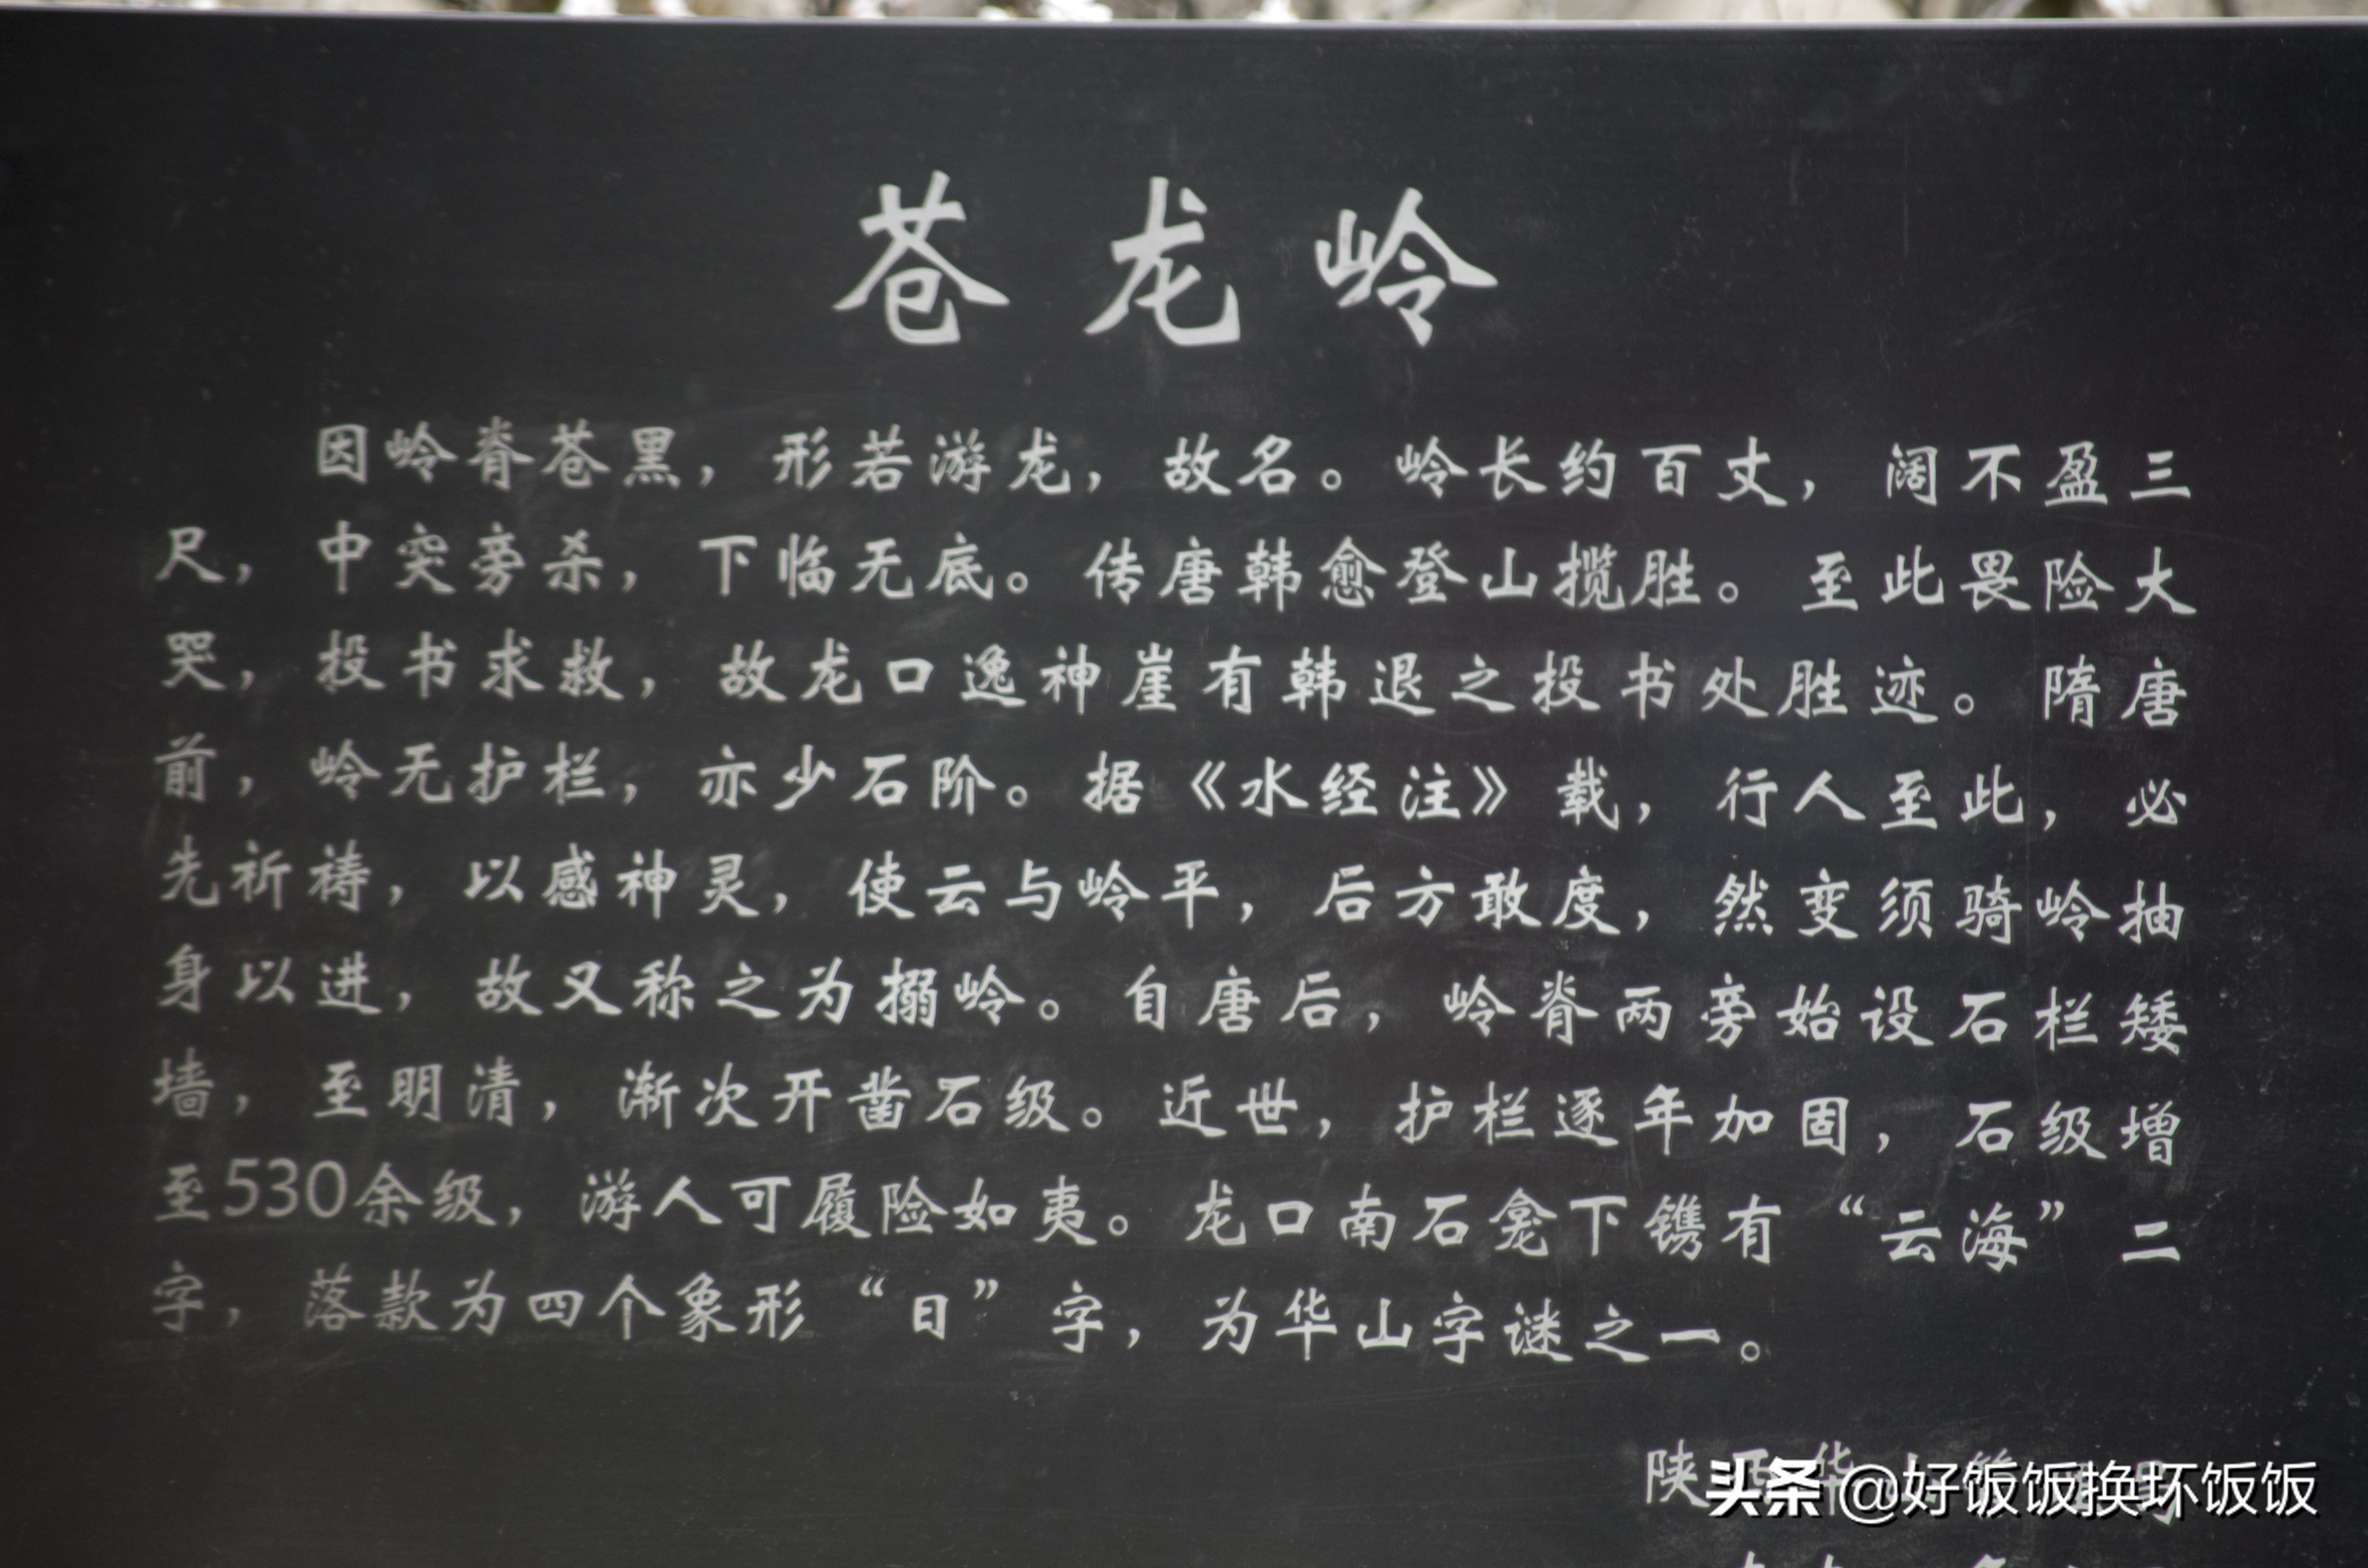 苍龙岭
因岭脊苍黑，形若游龙，故名。岭长约百丈，阔不盈三
尺，中突旁杀，下临无底。传唐韩愈登山揽胜。至此畏险大
哭，投书求救，故龙口逸神崖有韩退之投书处胜迹。隋唐
前，岭无护栏，亦少石阶。据《水经注》载，行人至此，必
先祈祷，以感神灵，使云与岭平，后方敢度，然变须骑岭抽
身以进，故又称之为搦岭。自唐后，岭脊两旁始设石栏矮
墙，至明清，渐次开凿石级。近世，护栏逐年加固，石级增
至530余级，游人可履险如夷。龙口南石龛下镌有“云海”二
字，落款为四个象形“日”字，为华山字谜之一。
陕
头条@好饭饭换坏饭饭